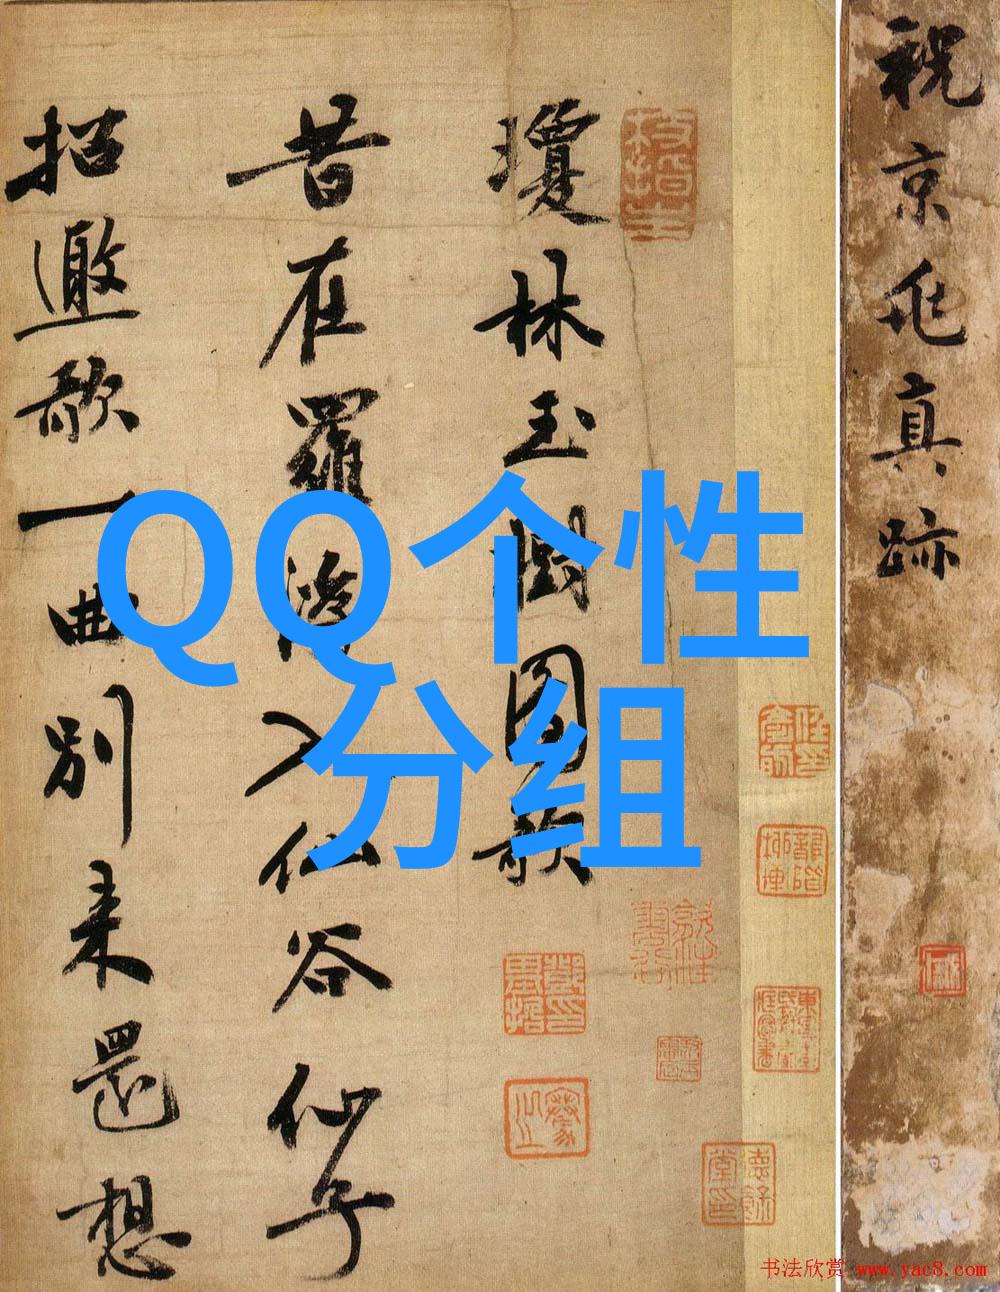 祝京兆真跡
瓊林玉樹圖歌
昔在羅浮入仙谷仙子
招邀歌一曲別來還想
QQ个性
分组
书法欣赏 www.yac8.com